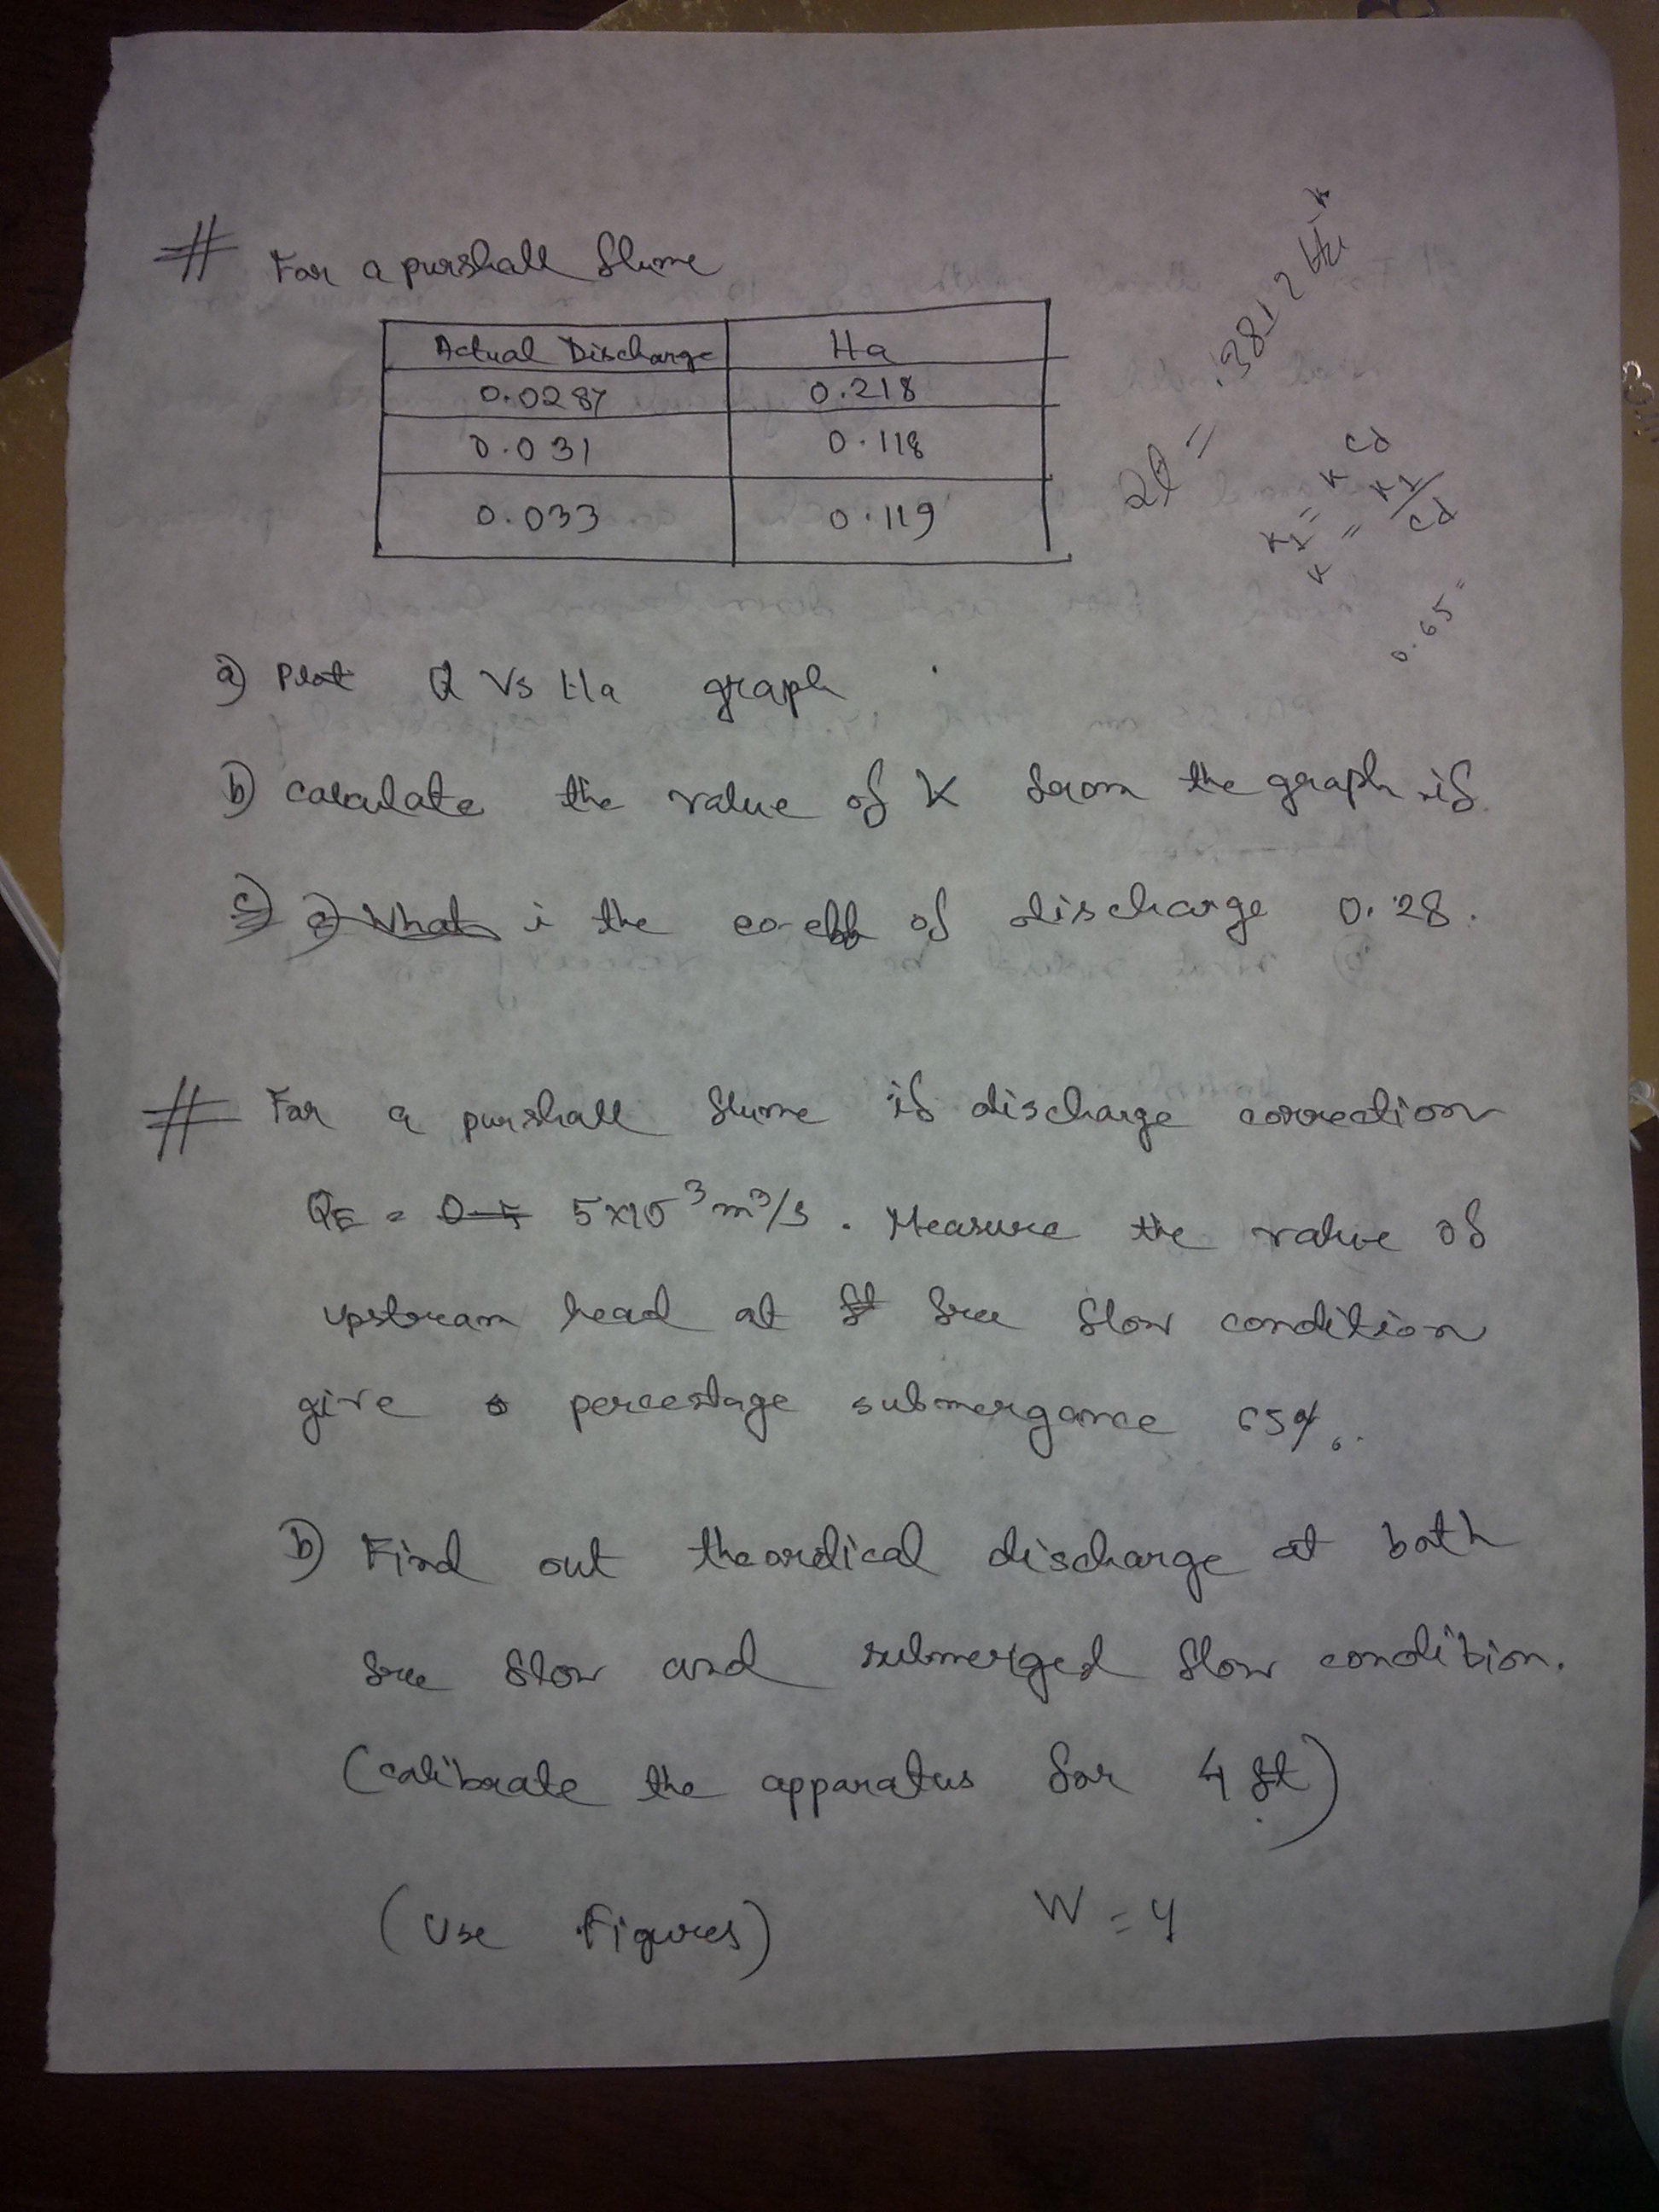 # For a purshall flume
Actual Discharge Ha
0.0287 0.218
0.031 0.118
0.033 0.119
K1 = K Cd
K = K1/Cd
0.65 =
a) Plot Q Vs Ha graph
b) calculate the value of K from the graph if
c) a) What i the co-eff of discharge 0.28.
# For a purshall flume if discharge correction
QE = 5x10^-3 m^3/s. Measure the value of
upstream head at free flow condition
give percestage submergance 65%.
b) Find out theordical discharge at both
free flow and submerged flow condition.
(calibrate the apparatus for 4 ft)
(Use Figures) W = 4